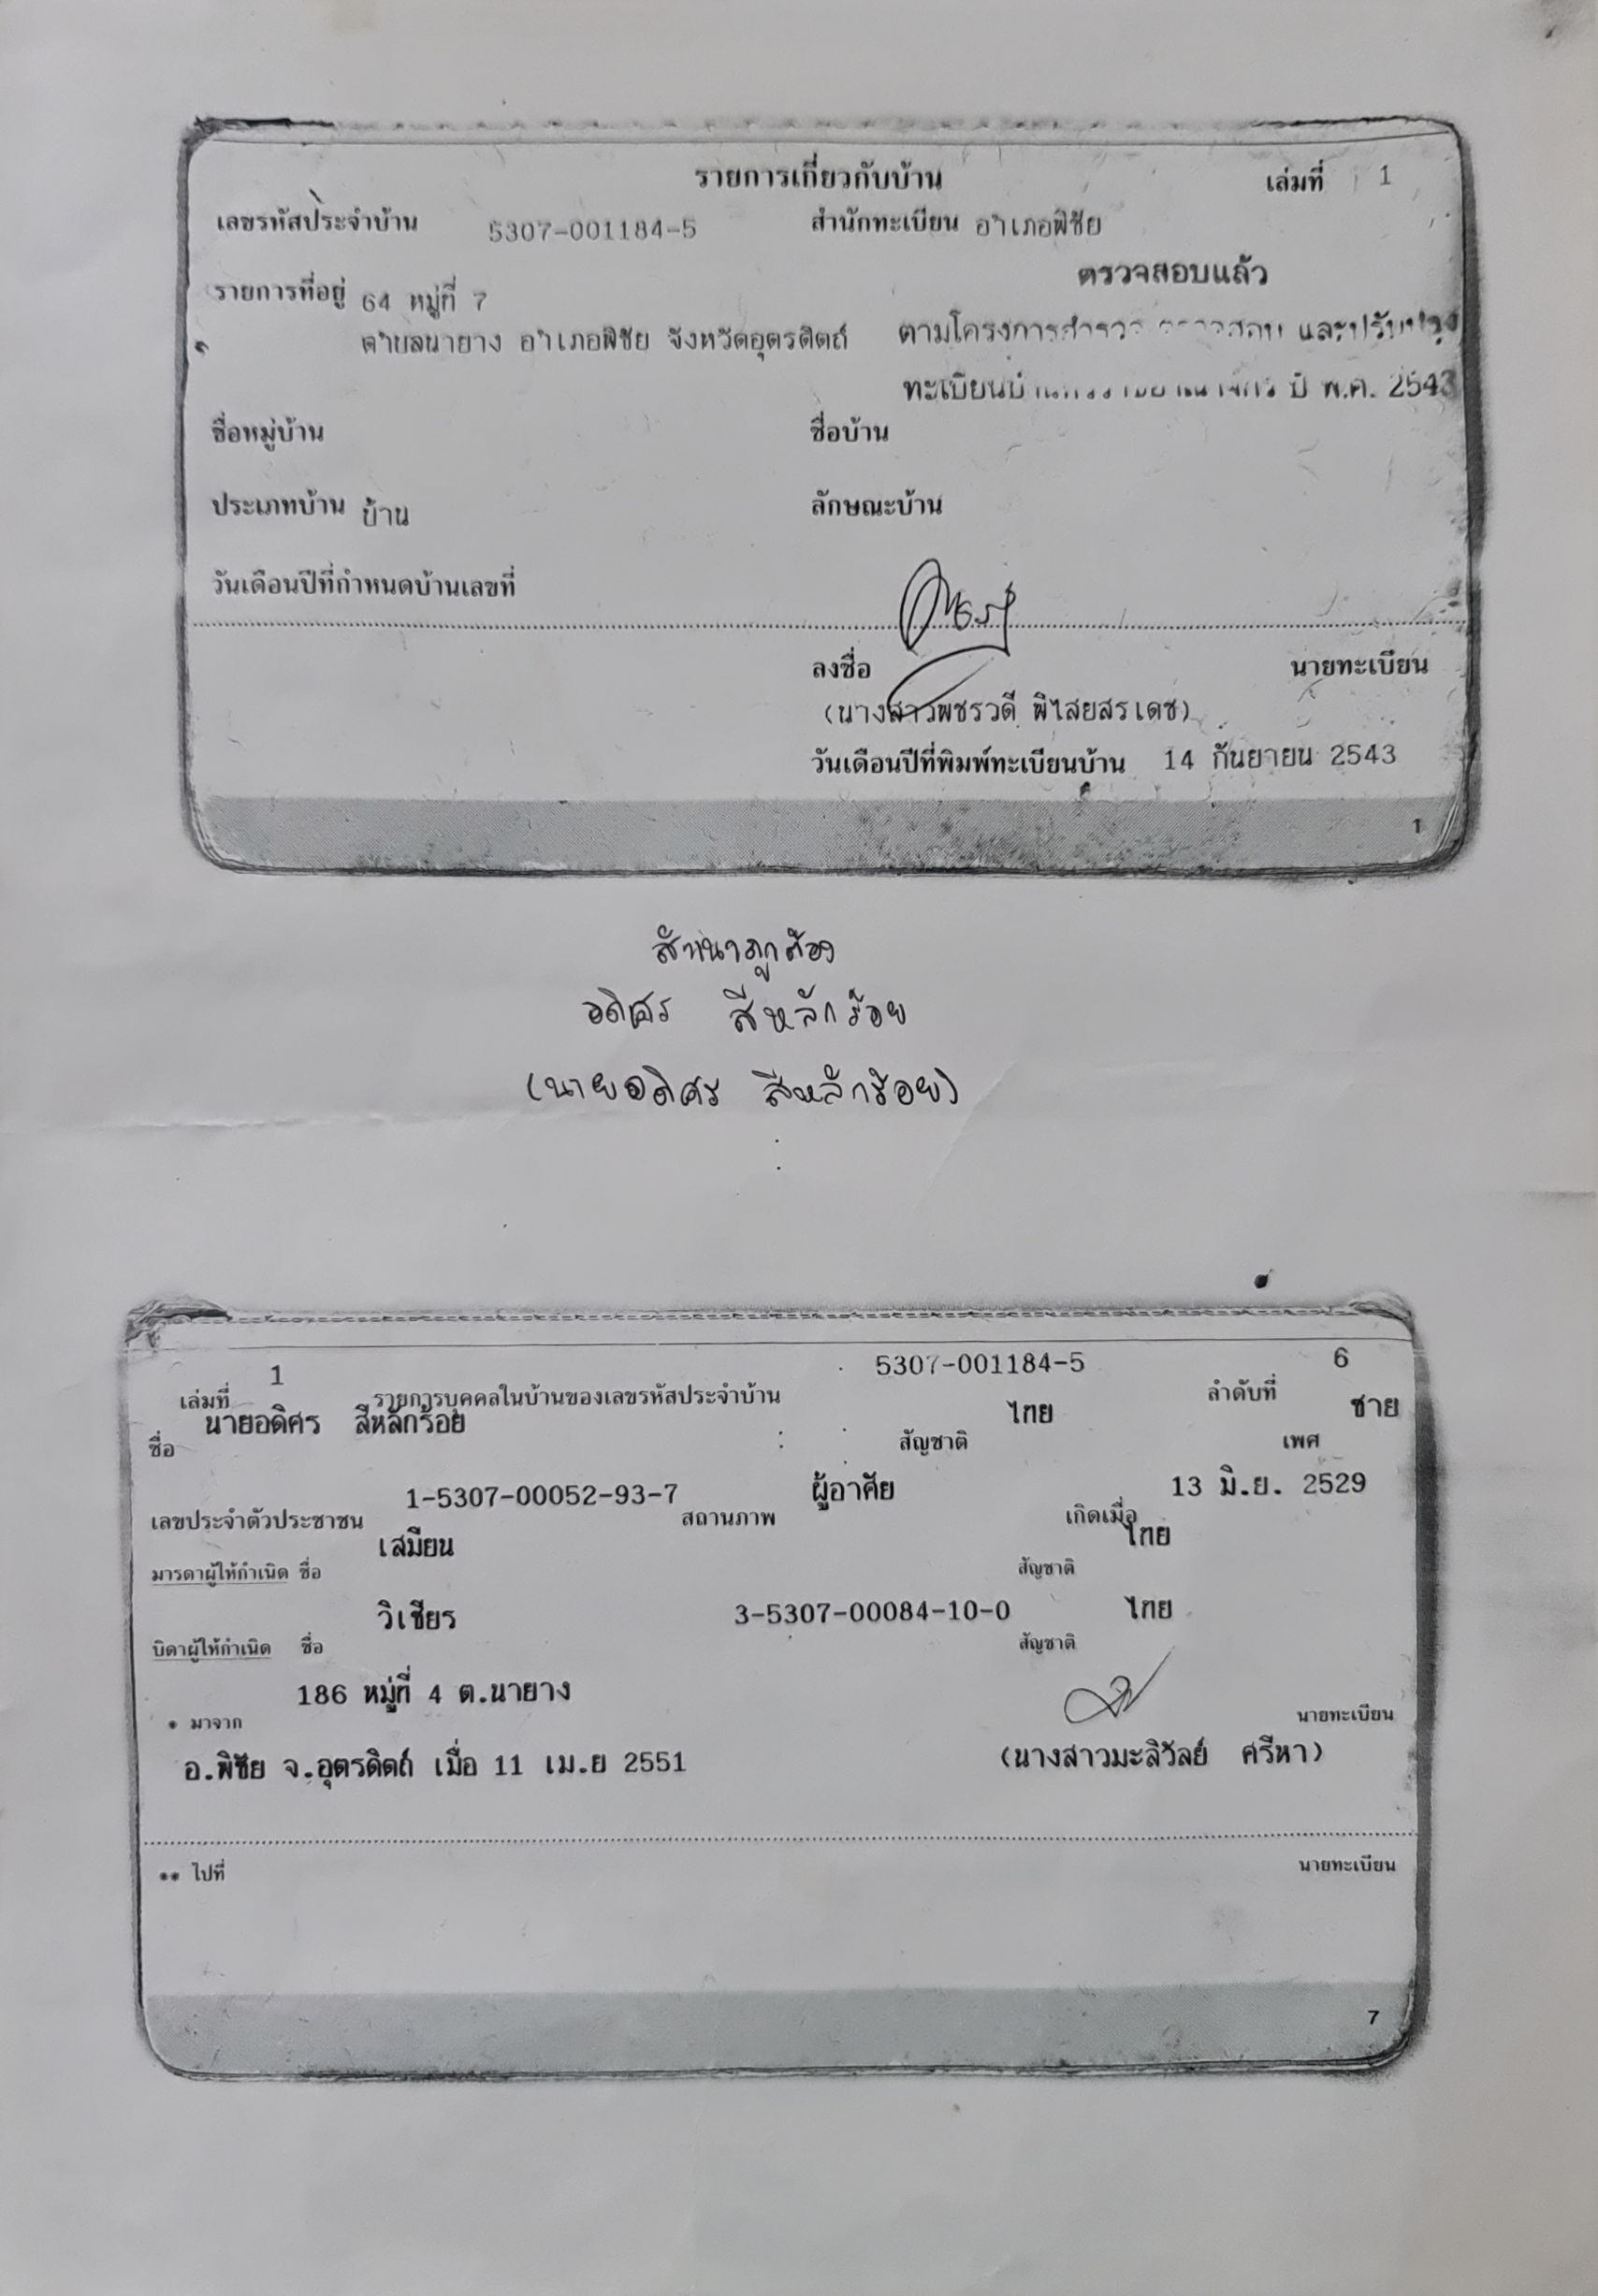 รายการเกี่ยวกับบ้าน เล่มที่ 1
เลขรหัสประจำบ้าน 5307-001184-5 สำนักทะเบียน อำเภอพิชัย
ตรวจสอบแล้ว
รายการที่อยู่ 64 หมู่ที่ 7
ตำบลนายาง อำเภอพิชัย จังหวัดอุตรดิตถ์ ตามโครงการสำรวจ ตรวจสอบ และปรับปรุง
ปี พ.ศ. 2543
ชื่อหมู่บ้าน ชื่อบ้าน
ประเภทบ้าน บ้าน ลักษณะบ้าน
วันเดือนปีที่กำหนดบ้านเลขที่
ลงชื่อ นายทะเบียน
(นางสาวพชรวดี พิไสยสรเดช)
วันเดือนปีที่พิมพ์ทะเบียนบ้าน 14 กันยายน 2543
1
สำเนาถูกต้อง
อดิศร สีหลักร้อย
(นายอดิศร สีหลักร้อย)
เล่มที่ 1 รายการบุคคลในบ้านของเลขรหัสประจำบ้าน 5307-001184-5 ลำดับที่ 6
ชื่อ นายอดิศร สีหลักร้อย สัญชาติ ไทย เพศ ชาย
เลขประจำตัวประชาชน 1-5307-00052-93-7 สถานภาพ ผู้อาศัย เกิดเมื่อ 13 มิ.ย. 2529
มารดาผู้ให้กำเนิด ชื่อ เสมียน สัญชาติ ไทย
บิดาผู้ให้กำเนิด ชื่อ วิเชียร 3-5307-00084-10-0 สัญชาติ ไทย
* มาจาก 186 หมู่ที่ 4 ต.นายาง นายทะเบียน
อ.พิชัย จ.อุตรดิตถ์ เมื่อ 11 เม.ย 2551 (นางสาวมะลิวัลย์ ศรีหา)
** ไปที่ นายทะเบียน
7